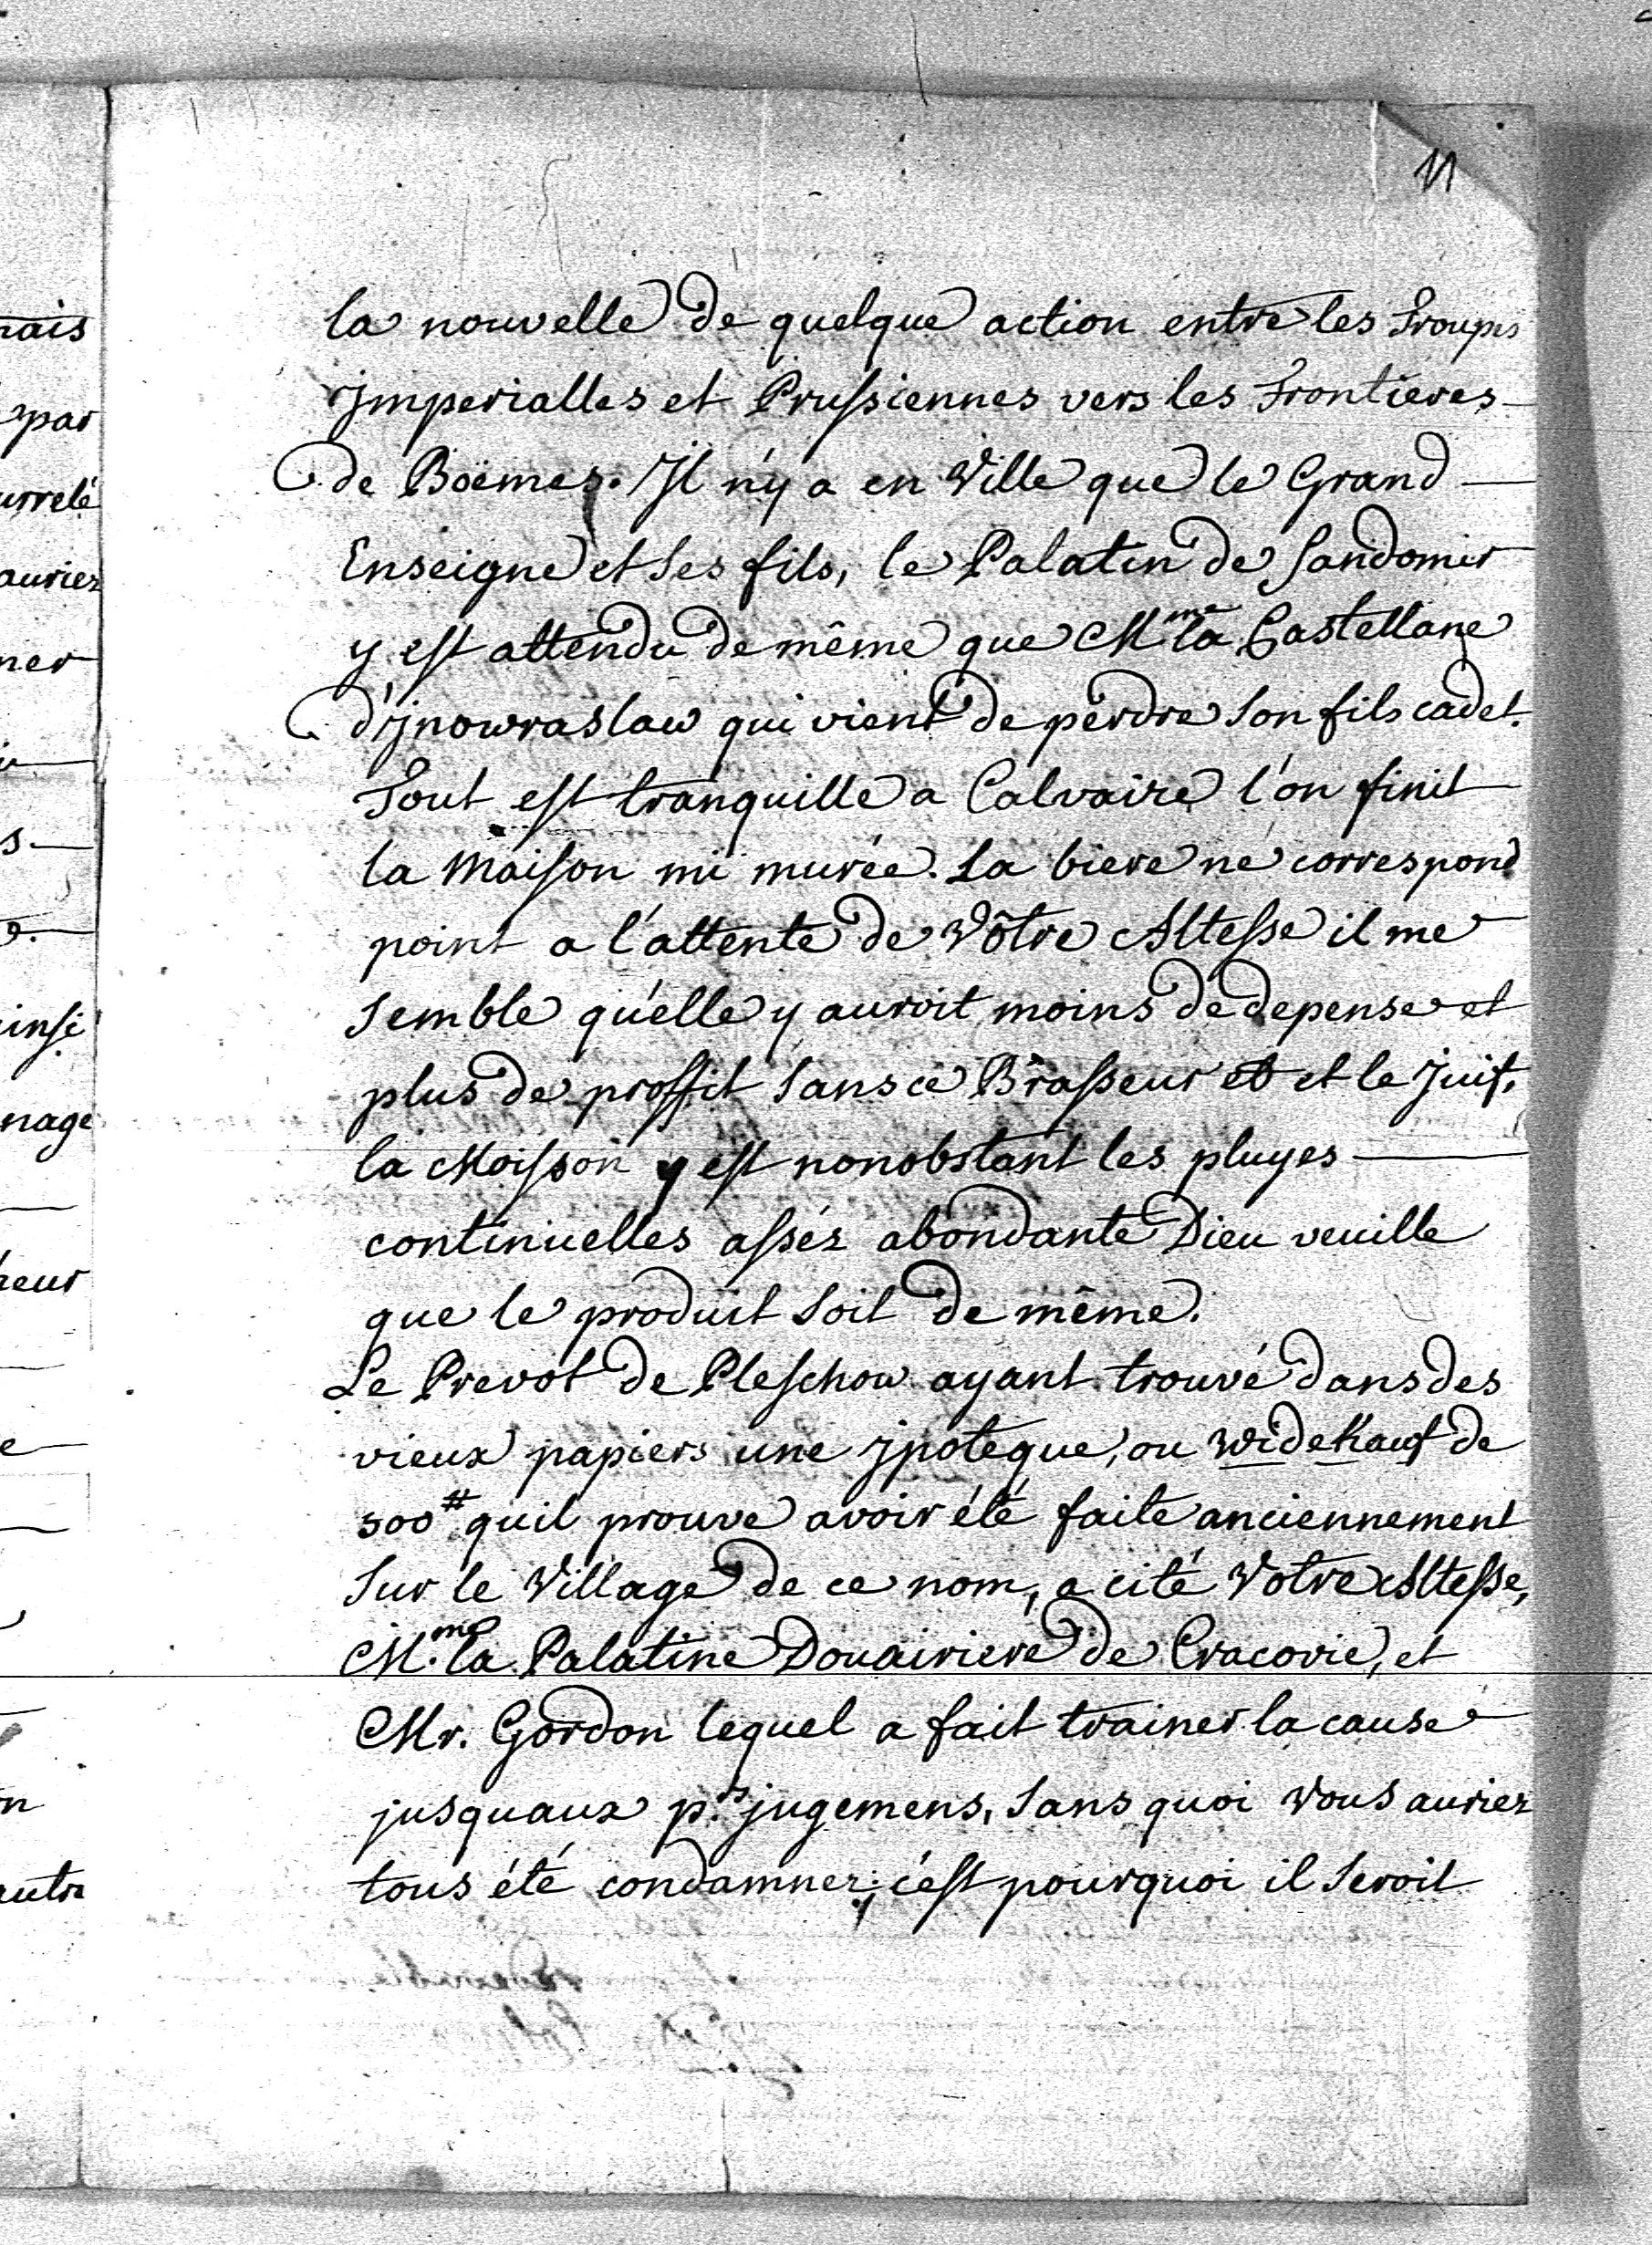 11
la nouvelle de quelque action entre les Troupes
jmperialles et Prussiennes vers les Frontieres
de Boëmes. Jl n'y a en Ville que le Grand
Enseigne et ses fils, le Palatin de Sandomir
y est attendu de même que Mme la Castellane
d'jnowraslaw qui vient de perdre son fils cadet.
Tout est tranquille a Calvaire l'on finit
la Maison mi murée. La biere ne correspond
point a l'attente de Vôtre Altesse il me
semble qu'elle y auroit moins de depense et
plus de proffit sans ce Brasseur et et le Juif.
la Moisson y est nonobstant les pluyes
continuelles assés abondante Dieu veuille
que le produit soit de même.
Le Prevot de Pleschow ayant trouvé dans des
vieux papiers une jpoteque, ou widekauf de
500# quil prouve avoir été faite anciennement
sur le Village de ce nom, a cité Votre Altesse,
Mme la Palatine Douairiere de Cracovie, et
Mr. Gordon lequel a fait trainer la cause
jusquaux p.ts jugemens, sans quoi Vous auriez
tous été condamnez; c'est pourquoi il seroit
nais
par
urrelé
auriez
ner
s.
insi
nage
heur
e
n
autre